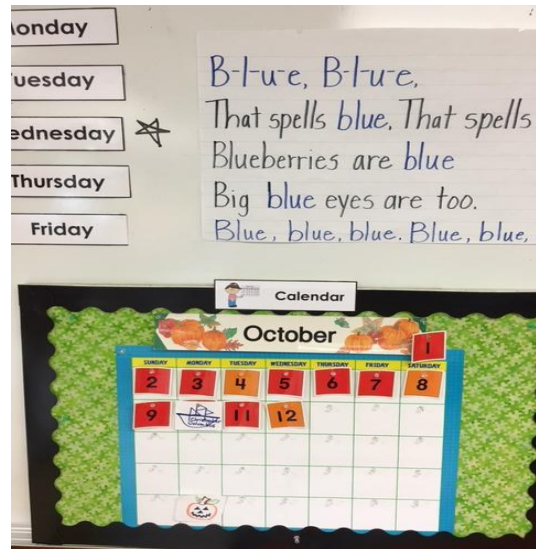 onday
uesday
ednesday
Thursday
Friday
B-l-u-e, B-l-u-e,
That spells blue. That spells
Blueberries are blue
Big blue eyes are too.
Blue, blue, blue. Blue, blue,
Calendar
October
1
SUNDAY MONDAY TUESDAY WEDNESDAY THURSDAY FRIDAY SATURDAY
2 3 4 5 6 7 8
9 11 12